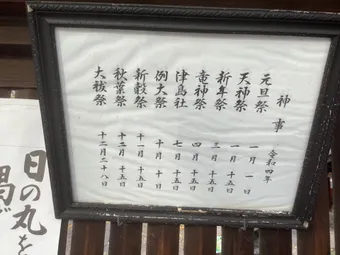 神事 令和四年
元旦祭 一月 一日
天神祭 一月 十五日
祈年祭 三月 十五日
竜神祭 四月 十五日
津島社 七月 十五日
例大祭 十月 十日
新穀祭 十一月 十五日
秋葉祭 十二月 十五日
大祓祭 十二月三十八日
日の丸を